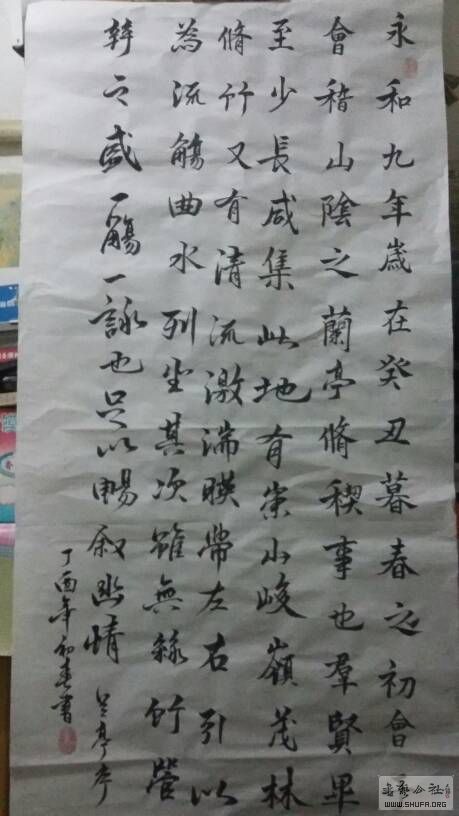 永和九年歲在癸丑暮春之初會
會稽山陰之蘭亭脩稧事也羣賢畢
至少長咸集此地有崇山峻嶺茂林
脩竹又有清流激湍暎帶左右引以
為流觴曲水列坐其次雖無絲竹管
之盛一觴一詠也足以暢叙幽情 兰亭序
丁酉年初春書
WWW.SHUFA.ORG